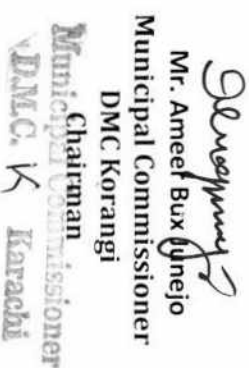 Mr. Ameer Bux Junejo
Municipal Commissioner
DMC Korangi
Chairman
Municipal Commissioner
D.M.C. K Karachi